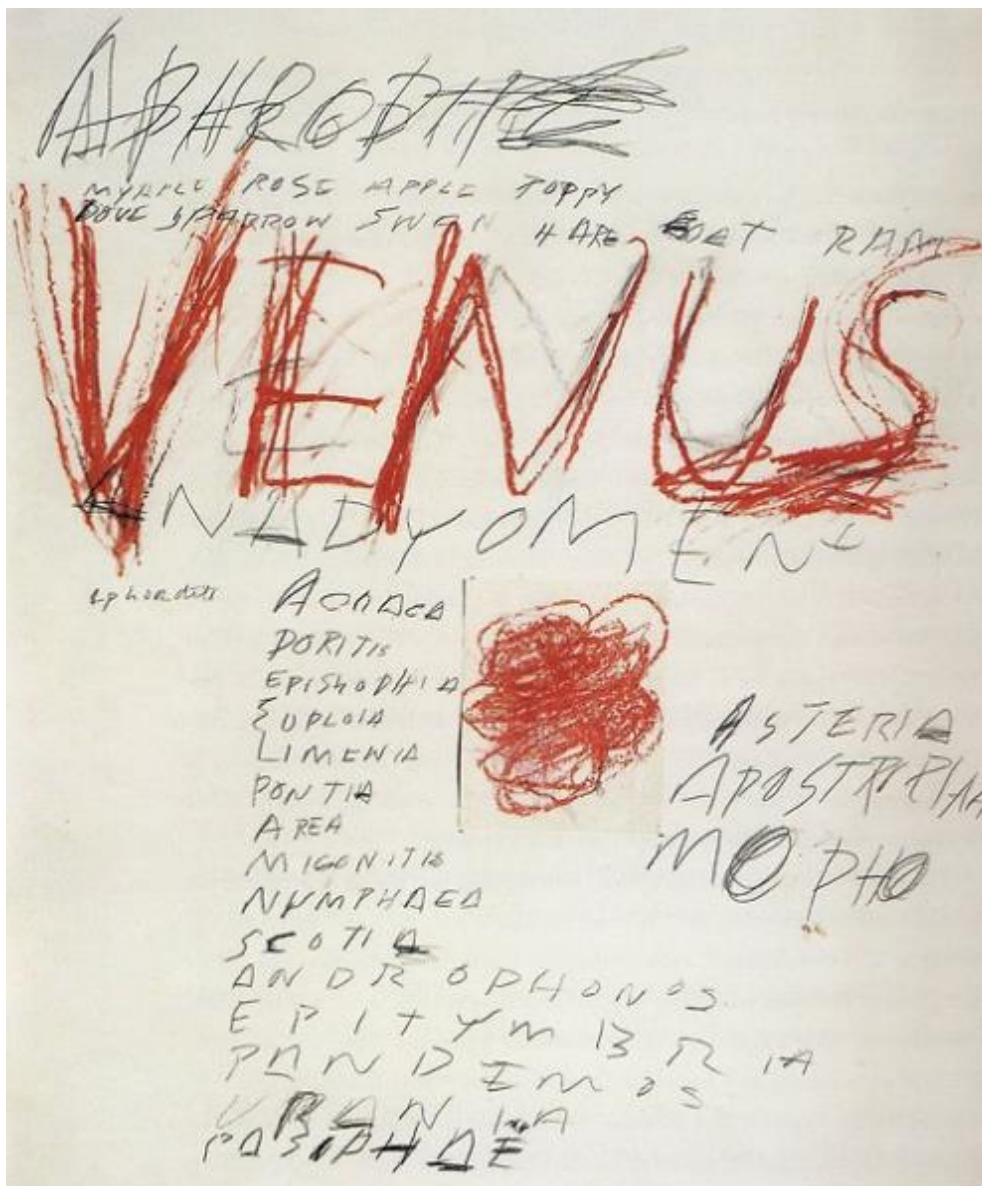 APHRODITE
MYRTLE ROSE APPLE POPPY
DOVE SPARROW SWAN HARE GOAT RAM
VENUS
ANADYOMENE
DORITIS
EPISKODHIA
EUPLOIA
LIMENIA
PONTIA
AREA
MIGONITIS
NYMPHAEA
SCOTIA
ANDROPHONOS
EPITYMBRIA
PANDEMOS
URANIA
PASIPHAE
ASTERIA
APOSTROPHIA
MOPHO